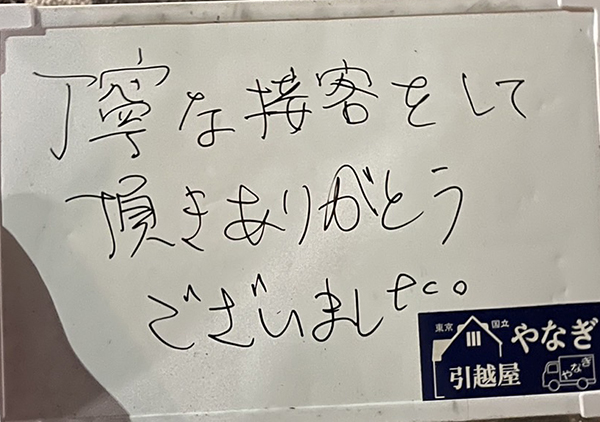 丁寧な接客をして
頂きありがとう
ございました。
東京 国立
やなぎ
引越屋
やなぎ